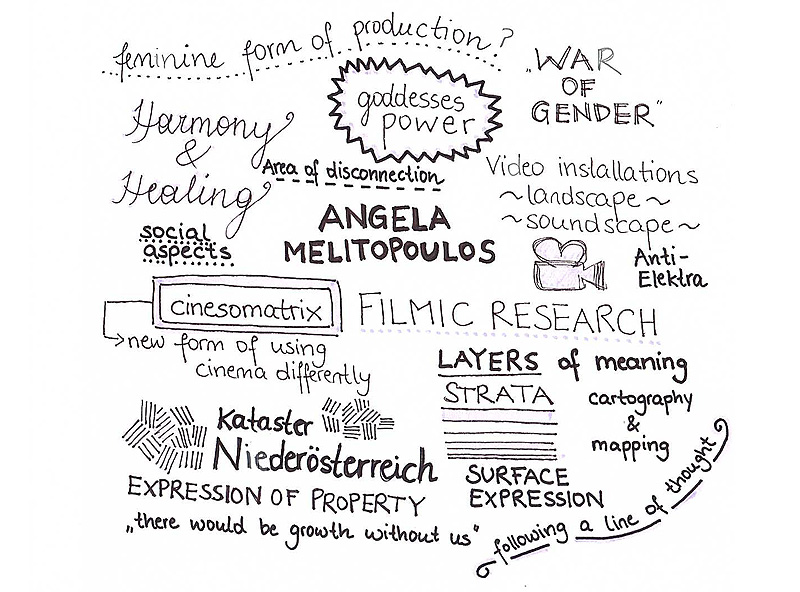 feminine form of production?
goddesses
power
„WAR
OF
GENDER"
Harmony
&
Healing
Area of disconnection
Video installations
~landscape~
~soundscape~
social
aspects
ANGELA
MELITOPOULOS
Anti-
Elektra
cinesomatrix
FILMIC RESEARCH
new form of using
cinema differently
LAYERS of meaning
STRATA
cartography
&
mapping
Kataster
Niederösterreich
SURFACE
EXPRESSION
EXPRESSION OF PROPERTY
„there would be growth without us"
following a line of thought